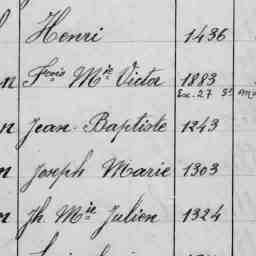 Henri 1436
n Fçois Mie Victor 1883
Ex. 27 St
n Jean Baptiste 1243
n Joseph Marie 1303
n Jh. Mie Julien 1324